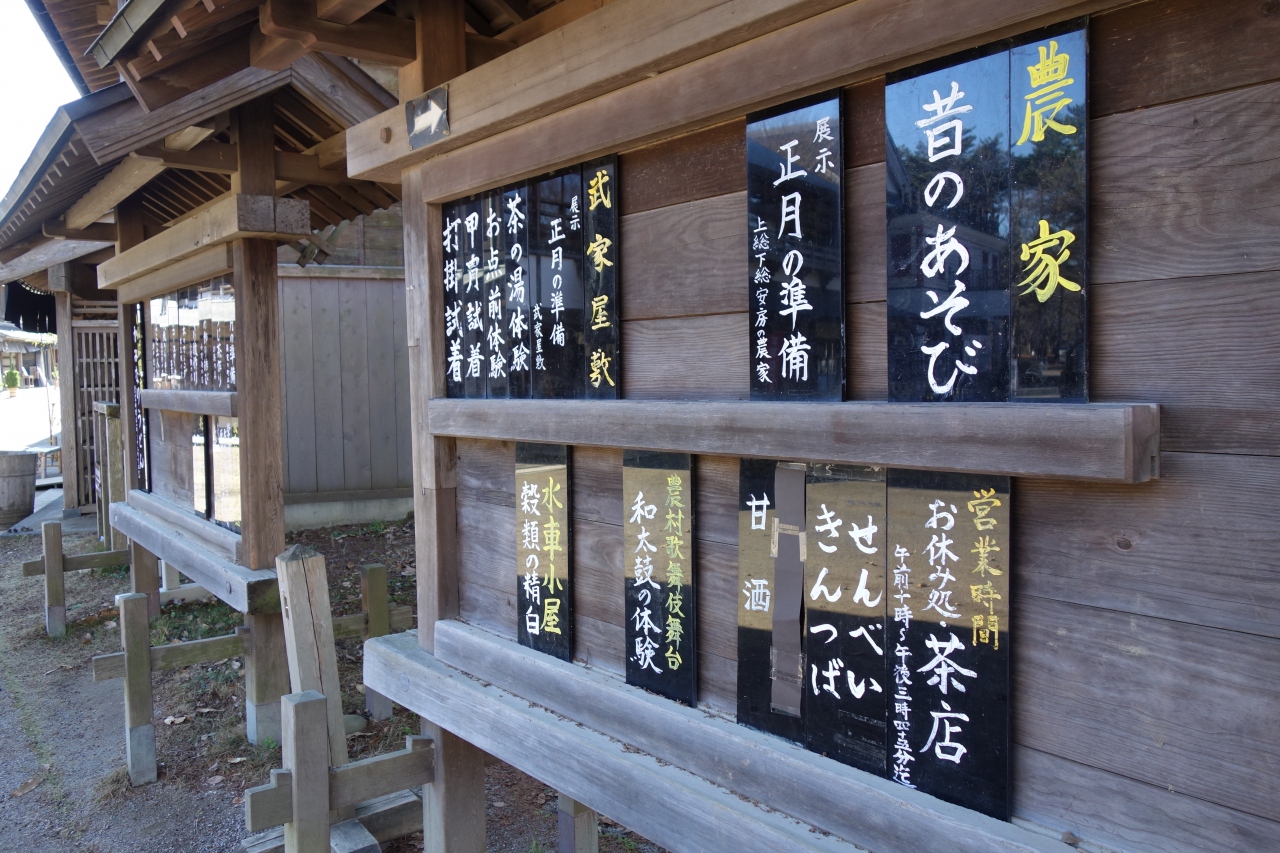 農家
昔のあそび
展示
正月の準備
上総下総安房の農家
武家屋敷
展示
正月の準備
武家屋敷
茶の湯体験
お点前体験
甲冑試着
打掛試着
営業時間
お休み処・茶店
午前十時~午後三時四十五分迄
せんべい
きんつば
甘酒
農村歌舞伎舞台
和太鼓の体験
水車小屋
穀類の精白